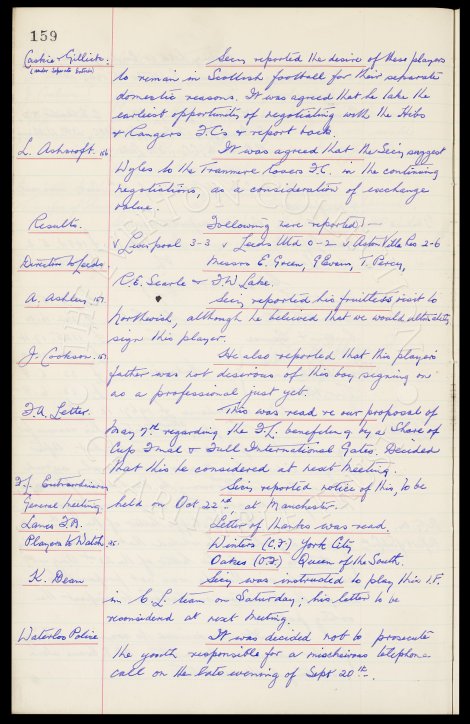 159
Caskie & Gillick: Secy reported the desire of these players
(under separate entries) to remain in Scottish football for their separate
domestic reasons. It was agreed that he take the
earliest opportunity of negotiating with the Hibs
& Rangers F.Cs & report back.
L. Ashcroft. 156 It was agreed that the Secy suggest
Wyles to the Tranmere Rovers F.C. in the continuing
negotiations, as a consideration of exchange
value.
Results. Following were reported:-
v Liverpool 3-3 v Leeds Utd 0-2 v Aston Villa Res 2-6
Directors to Leeds. Messrs E. Green, Evans, T. Percy,
R.E. Searle & F.W Lake.
A. Ashley 157. Secy reported his fruitless visit to
Northwich, although he believed that we would ultimately
sign this player.
J. Cookson. He also reported that this player's
father was not desirous of this boy signing on
as a professional just yet.
F.A. Letter. This was read re our proposal of
May 7th regarding the F.L. benefiting by a Share of
Cup Final & Full International Gates. Decided
that this be considered at next Meeting.
F.L. Extraordinary Secy reported notice of this, to be
General Meeting held on Oct 22nd, at Manchester.
Lancs F.A. Letter of thanks was read.
Players to Watch Winters (C.F.) York City
Oakes (O.F.) Queen of the South.
K. Dean Secy was instructed to play this I.F.
in C.L. team on Saturday; his letter to be
reconsidered at next Meeting.
Waterloo Police It was decided not to prosecute
the youth responsible for a mischievous telephone
call on the late evening of Sept 20th.